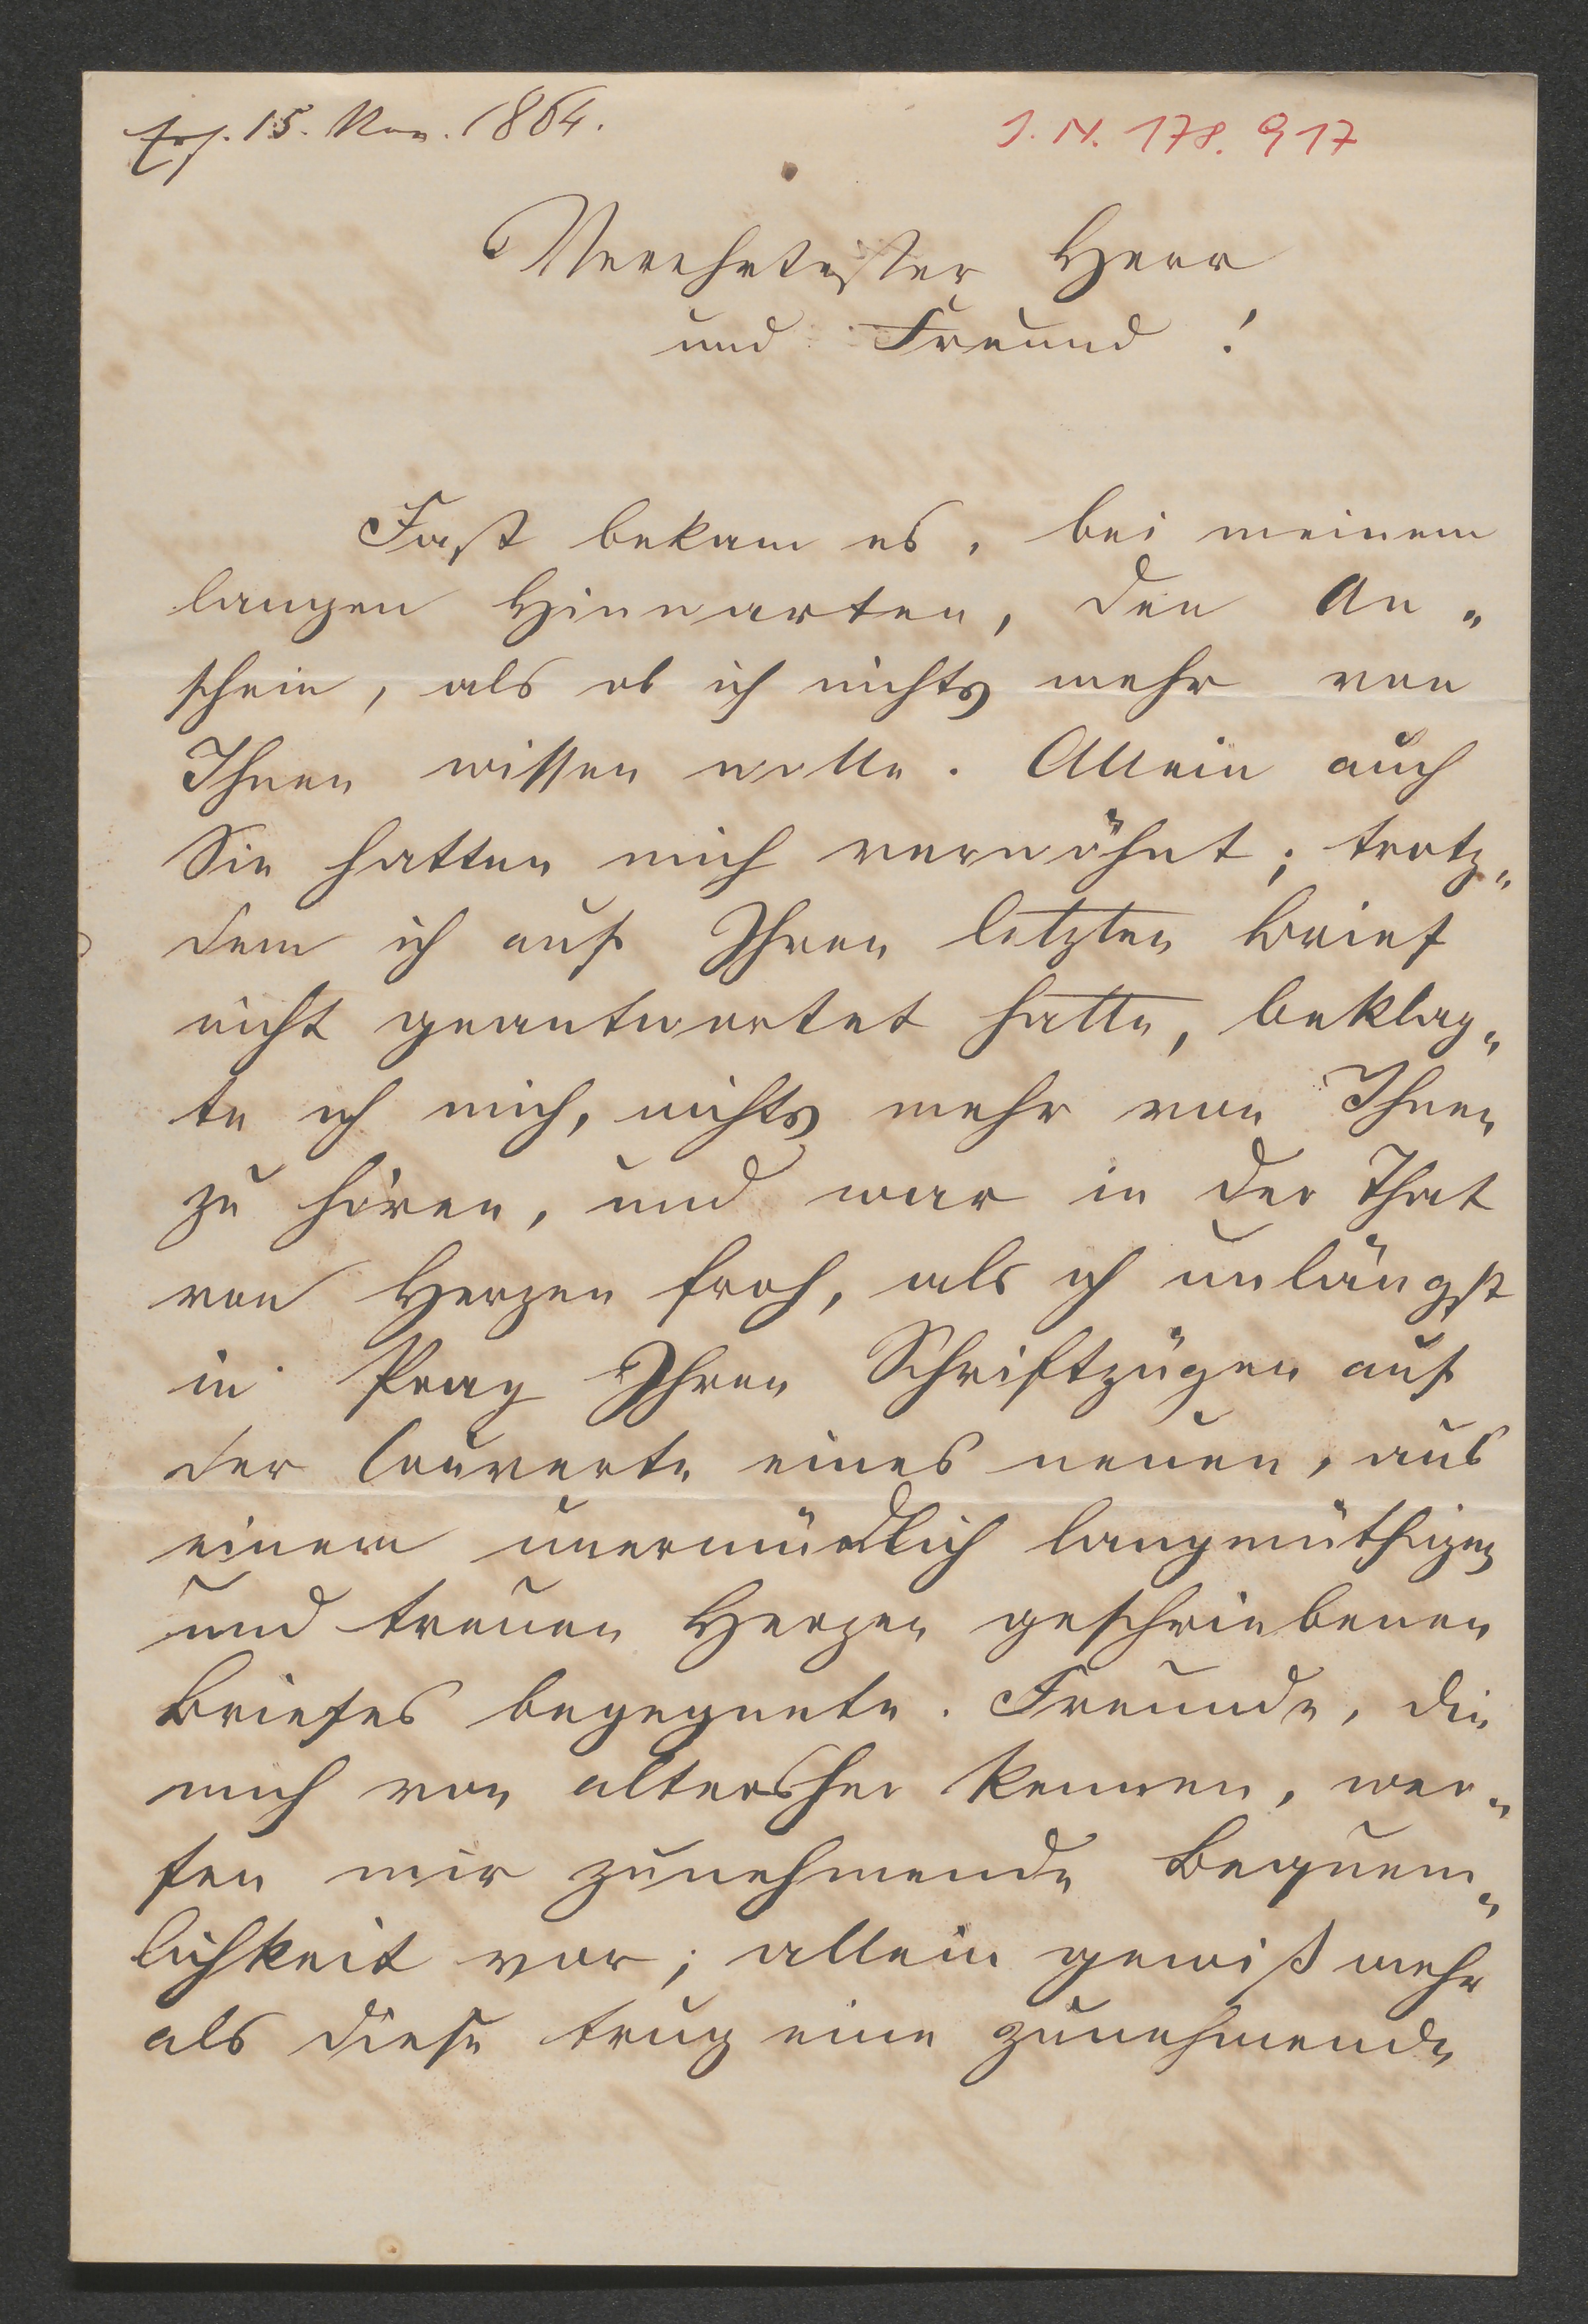 15. Nov. 1864.
I. N. 178.917
Verehrtester Herr
und Freund!
Fast bekam es, bei meinem
langen Hinwarten, den An„
schein, als ob ich nichts mehr von
Ihnen wissen wolle. Allein auch
Sie hatten mich verwöhnt; trotz„
dem ich auf Ihren letzten Brief
nicht geantwortet hatte, beklag„
te ich mich, nichts mehr von Ihnen
zu hören, und war in der That
von Herzen froh, als ich unlängst
in Prag Ihren Schriftzügen auf
der Couverte eines neuen, aus
einem unermüdlich langmüthigen
und treuen Herzen geschriebenen
Briefes begegnete. Freunde, die
mich von altersher kennen, wer„
fen mir zunehmende Bequem„
lichkeit vor; allein gewiß mehr
als diese trug eine zunehmende